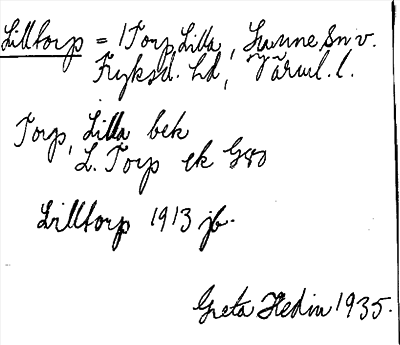 Lilltorp = /Torp, Lilla, Sunne Sn v.
Fryksd. hd, Värml. l.
Torp, Lilla bek
L. Torp ek G80
Lilltorp 1913 jb.
Greta Hedin 1935.